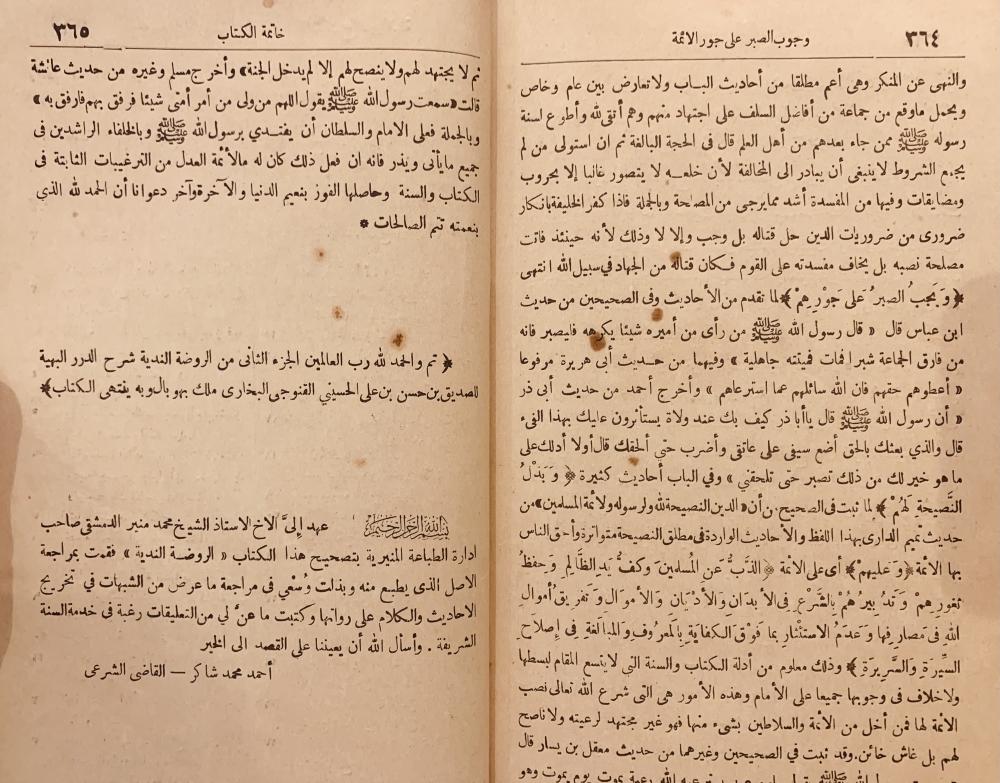 ٣٦٤
وجوب الصبر على جور الائمة
والنهى عن المنكر وهى أعم مطلقا من أحاديث الباب ولا تعارض بين عام وخاص
ويحمل ماوقع من جماعة من أفاضل السلف على اجتهاد منهم وهم أتقى لله وأطوع لسنة
رسوله ﷺ ممن جاء بعدهم من أهل العلم قال فى الحجة البالغة ثم ان استولى من لم
يجمع الشروط لاينبغى أن يبادر الى المخالفة لأن خلعه لا يتصور غالبا إلا بحروب
ومضايقات وفيها من المفسدة أشد مما يرجى من المصلحة وبالجملة فاذا كفر الخليفة بانكار
ضرورى من ضروريات الدين حل قتاله بل وجب وإلا لا وذلك لأنه حينئذ فاتت
مصلحة نصبه بل يخاف مفسدته على القوم فكان قتاله من الجهاد فى سبيل الله انتهى
﴿وَيَجبُ الصبرُ عَلى جَوْرِهِمْ﴾ لما تقدم من الأحاديث وفى الصحيحين من حديث
ابن عباس قال « قال رسول الله ﷺ من رأى من أميره شيئا يكرهه فليصبر فانه
من فارق الجماعة شبرا فمات فميتته جاهلية » وفيهما من حديث أبى هريرة مرفوعا
« أعطوهم حقهم فان الله سائلهم عما استرعاهم » وأخرج أحمد من حديث أبى ذر
« أن رسول الله ﷺ قال ياأبا ذر كيف بك عند ولاة يستأثرون عليك بهذا الفىء
قال والذي بعثك بالحق أضع سيفى على عاتقى وأضرب حتى ألحقك قال أولا أدلك على
ما هو خير لك من ذلك تصبر حتى تلحقني » وفي الباب أحاديث كثيرة ﴿ وَبَذْلُ
النَّصيحة لَهُمْ ﴾ لما ثبت فى الصحيح من أن « الدين النصيحة لله ولرسوله ولأئمة المسلمين » من
حديث تميم الدارى بهذا اللفظ والأحاديث الواردة فى مطلق النصيحة متواترة وأحق الناس
بها الأئمة ﴿وَعليهمْ﴾ أى على الأئمة ﴿ الذَّبُّ عَن المُسلمينَ وَكفُّ يَدِ الظَّالِمِ وَحفظُ
ثغورِهِمْ وَتَدْبيرُهُمْ بالشَّرْعِ فى الأبدَانِ وَالأَدْيَانِ وَالأموَالِ وَتَفريقُ أَموالِ
اللهِ فى مَصَارِفِها وَعَدَمُ الاستئْثارِ بما فَوْقَ الكفَايَةِ بِالمَعرُوفِ وَالمبَالغَةُ فى إِصْلاَحِ
السِّيرَةِ وَالسَّرِيرَةِ ﴾ وذلك معلوم من أدلة الكتاب والسنة التى لا يتسع المقام لبسطها
ولاخلاف فى وجوبها جميعا على الامام وهذه الأمور هى التى شرع الله تعالى نصب
الأئمة لها فمن أخل من الأئمة والسلاطين بشىء منها فهو غير مجتهد لرعيته ولا ناصح
لهم بل غاش خائن. وقد ثبت فى الصحيحين وغيرهما من حديث معقل بن يسار قال
الله رعية يموت يوم يموت وهو
٣٦٥
خاتمة الكتاب
ثم لا يجتهد لهم ولا ينصح لهم إلا لم يدخل الجنة» وأخرج مسلم وغيره من حديث عائشة
قالت « سمعت رسول الله ﷺ يقول اللهم من ولى من أمر أمتى شيئا فرفق بهم فارفق به »
وبالجملة فعلى الامام والسلطان أن يقتدى برسول الله ﷺ وبالخلفاء الراشدين فى
جميع مايأتى ويذر فانه ان فعل ذلك كان له مالأئمة العدل من الترغيبات الثابتة فى
الكتاب والسنة وحاصلها الفوز بنعيم الدنيا والآخرة وآخر دعوانا أن الحمد لله الذي
بنعمته تتم الصالحات *
﴿ تم والحمد لله رب العالمين الجزء الثانى من الروضة الندية شرح الدرر البهية
للصديق بن حسن بن على الحسيني القنوجى البخارى ملك بهوبال وبه ينتهى الكتاب﴾
بسم الله الرحمن الرحيم عهد إلىَّ الاخ الاستاذ الشيخ محمد منير الدمشقى صاحب
ادارة الطباعة المنيرية بتصحيح هذا الكتاب « الروضة الندية » فقمت بمراجعة
الاصل الذى يطبع منه وبذلت وُسْعي فى مراجعة ما عرض من الشبهات في تخريج
الاحاديث والكلام على رواتها وكتبت ما عنَّ لي من التعليقات رغبة فى خدمة السنة
الشريفة . وأسأل الله أن يعيننا على القصد الى الخير
أحمد محمد شاكر — القاضى الشرعى